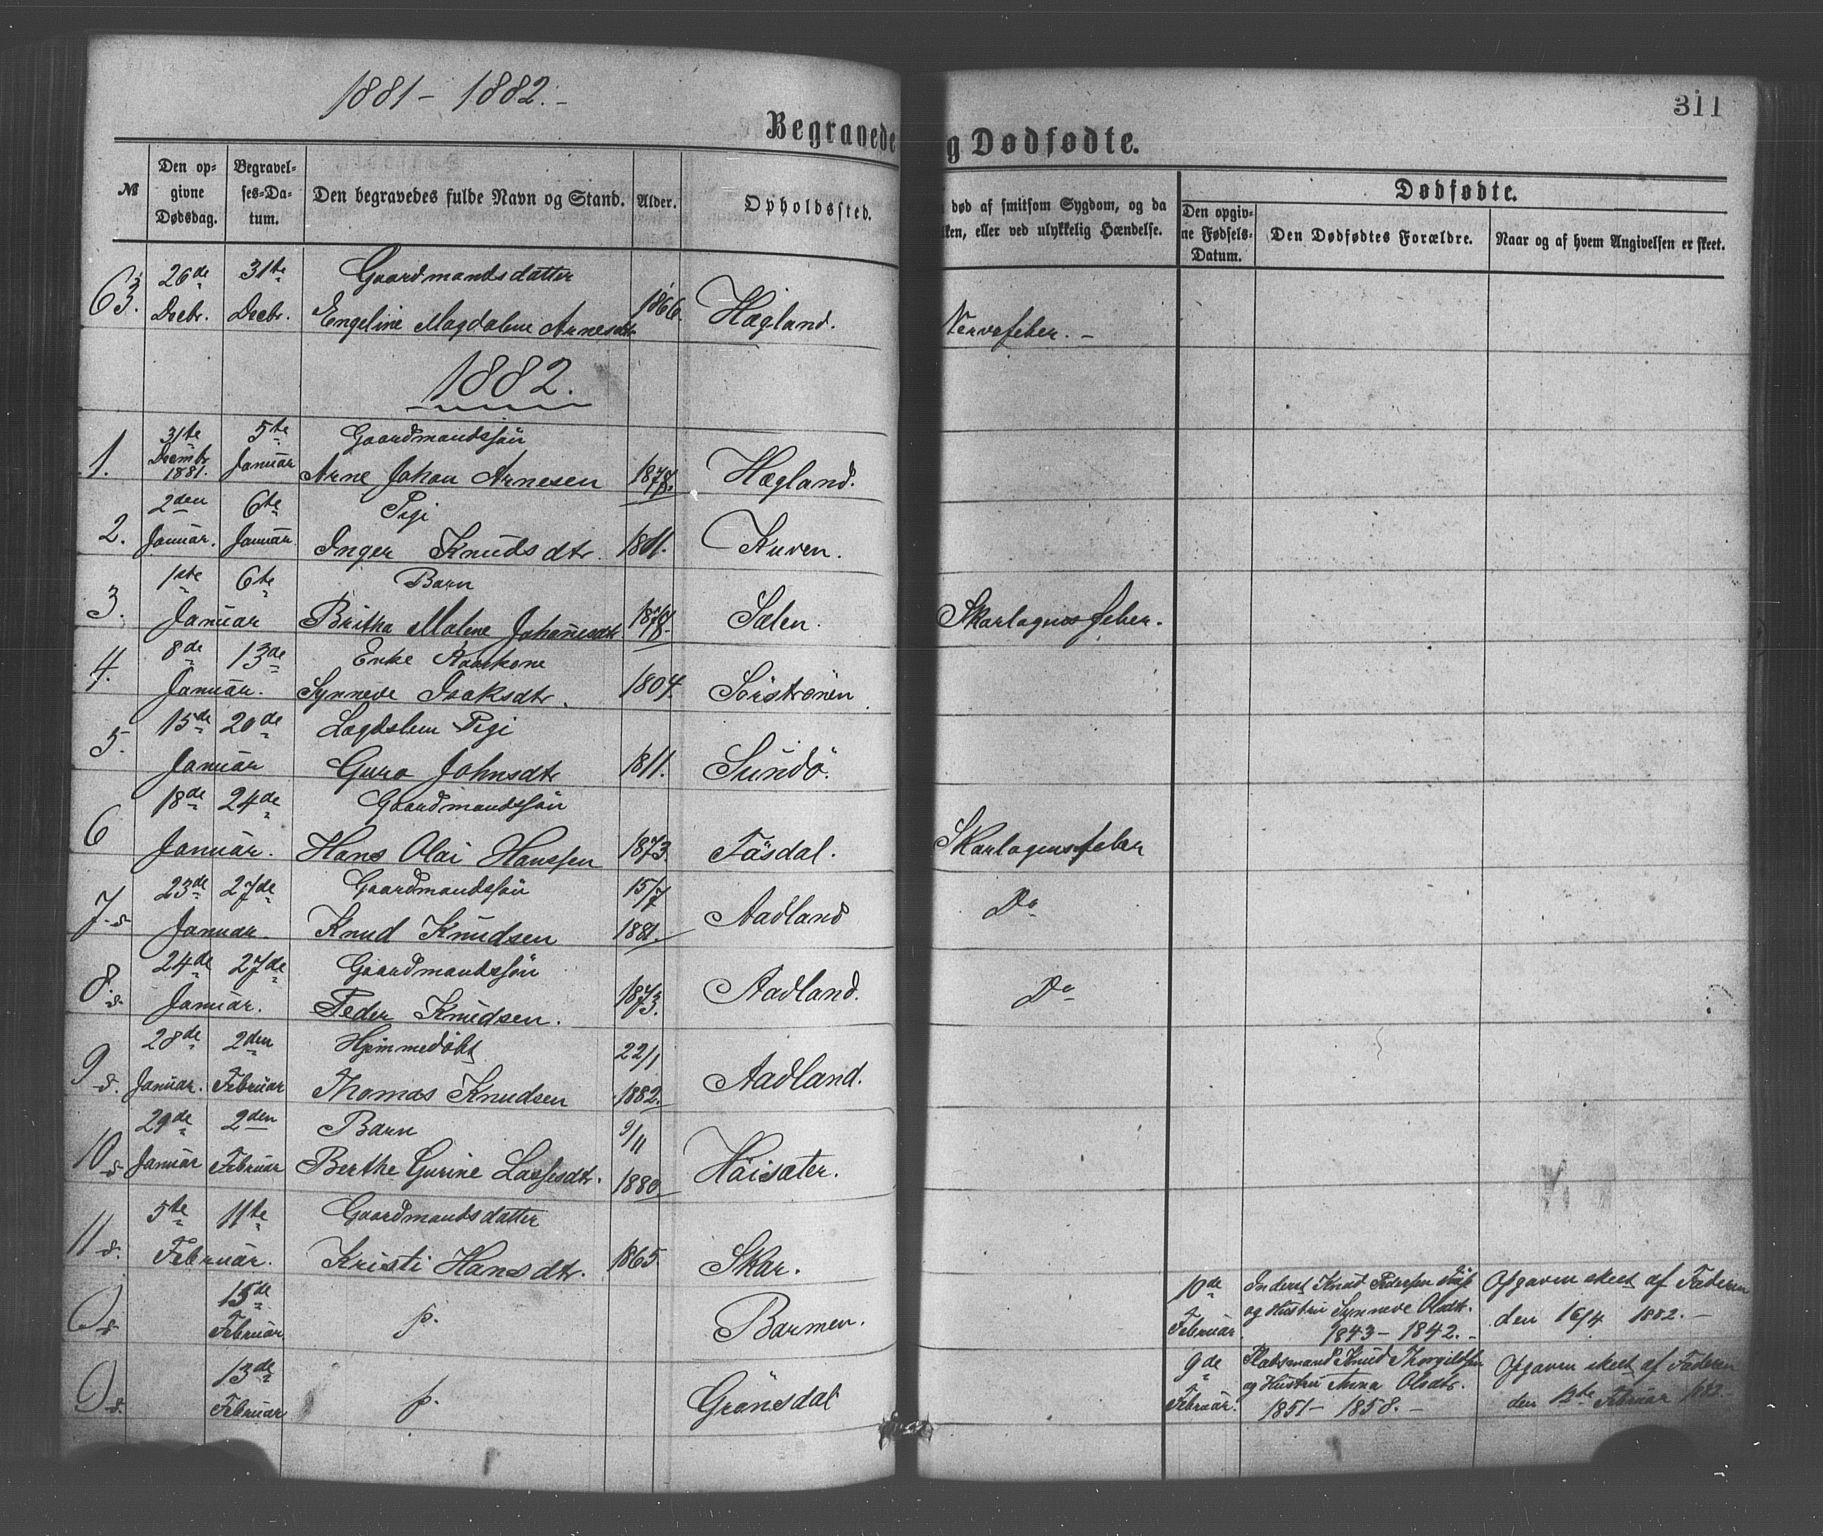 1881 - 1882. -
311
Begravede
g Dødfødte.
№ | Den opgivne Dødsdag. | Begravelses-Datum. | Den begravedes fulde Navn og Stand. | Alder. | Opholdssted. | død af smitsom Sygdom, og da | Dødfødte.
lken, eller ved ulykkelig Hændelse. | Den opgivne Fødsels-Datum. | Den Dødfødtes Forældre. | Naar og af hvem Angivelsen er skeet.
26de | 31te | Gaardmandsdatter
63. | Decbr. | Decbr. | Engeline Magdalene Arnesdtr | 1866. | Hægland. | Nervefeber. -
1882.
31te | 5te | Gaardmandssön
1. | Decmbr 1881. | Januar | Arne Johan Arnesen | 1878. | Hægland.
2den | 6te | Pigi
2. | Januar. | Januar | Inger Knudsdtr. | 1801. | Kuven.
1ste | 6te | Barn
3. | Januar | Britha Malene Johannesdtr | Sælen. | Skarlagensfeber.
8de | 13de | Enke Kaarkone
4. | Januar. | Synneve Isaksdtr. | 1804. | Sörströnen
15de | 20de | Lægdslem Pigi
5. | Januar | Guro Johnsdtr | 1811. | Sundö.
18de | 24de | Gaardmandssön
6 | Januar. | Hans Olai Hanssen | 1873. | Tösdal. | Skarlagensfeber
23de | 27de | Gaardmandssön | 15/7
7. d | Januar. | Knud Knudsen | 1881. | Aadland | Do
24de | 27de | Gaardmandssön
8. d. | Januar. | Peder Knudsen. | 1873. | Aadland. | Do
28de | 2den | Hjemmedöbt | 22/1
9 d. | Januar. | Februar | Thomas Knudsen | 1882. | Aadland.
29de | 2den | Barn | 9/11
10 d | Januar | Februar | Berthe Gurine Lassesdtr. | 1880 | Höisæter.
5te | 11te | Gaardmandsdatter
11 d. | Februar. | Kristi Hansdtr. | 1865. | Skar.
15de | 10de | Inderst Knud Pedersen | Opgaven skeet af Faderen
0 d | Februar | p. | Barmen. | Februar. | og Hustru Synneve Olsdtr. | den 16/4 1882. -
1843 - 1842. -
13de | 9de | Pladsmand Knud Thorgildsen | Opgaven skeet af Faderen
0 d. | Februar | p. | Grönsdal | Februar. | og Hustru Anna Olsdtr. | den 13te Februar 1882. -
1851 - 1858. -